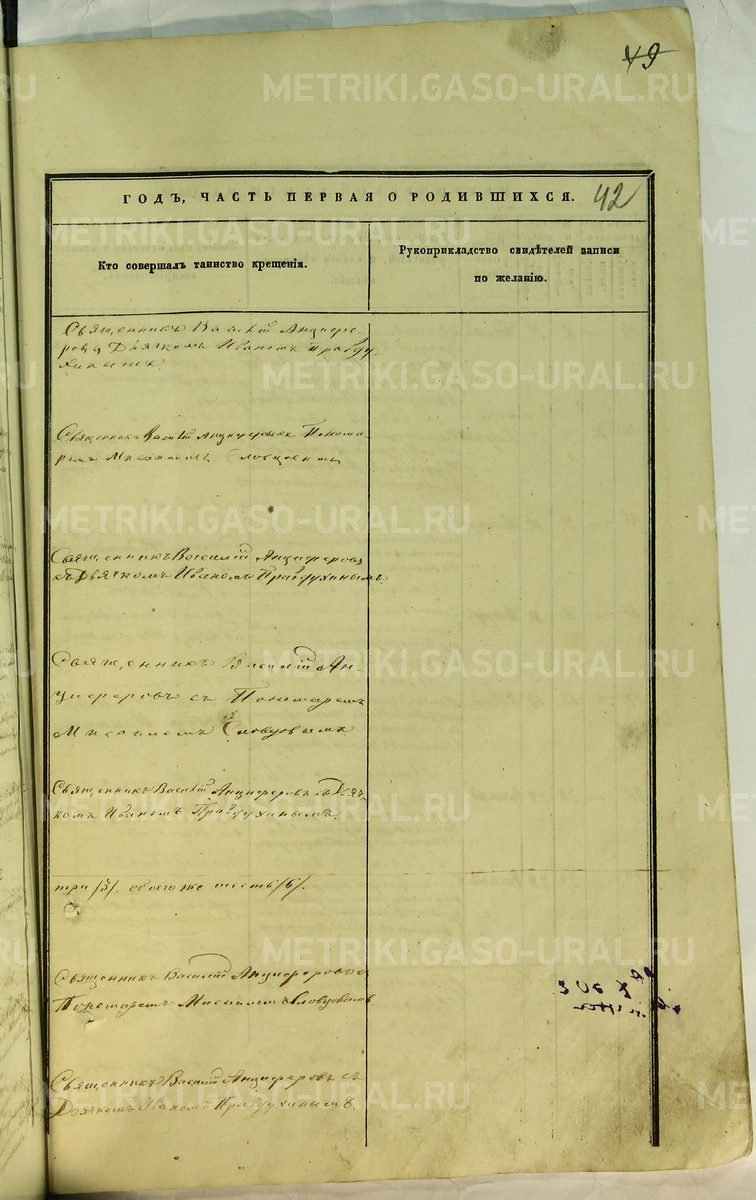 49
METRIKI.GASO-URAL.RU
ГОДЪ, ЧАСТЬ ПЕРВАЯ О РОДИВШИХСЯ.
42
Кто совершалъ таинство крещенія.
Рукоприкладство свидѣтелей записи
по желанію.
Священникъ Василій Анциферовъ
съ Дьячкомъ Иваномъ Правдухинымъ
Священникъ Василій Анциферовъ съ Понома-
ремъ Мисаиломъ Словцовымъ
Священникъ Василій Анциферовъ
съ Дьячкомъ Иваномъ Правдухинымъ
Священникъ Василій Ан-
циферовъ съ Пономаремъ
Мисаиломъ Словцовымъ
Священникъ Василій Анциферовъ съ Дьяч-
комъ Иваномъ Правдухинымъ.
три /3/, обоего же шесть /6/.
Священникъ Василій Анциферовъ съ
Пономаремъ Мисаиломъ Словцовымъ
Священникъ Василій Анциферовъ съ
Дьячкомъ Иваномъ Правдухинымъ.